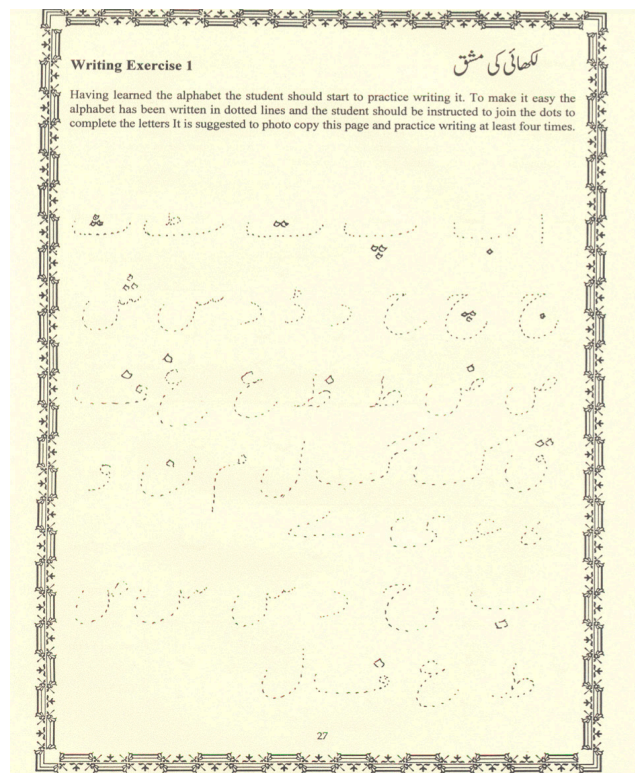 Writing Exercise 1
لکھائی کی مشق
Having learned the alphabet the student should start to practice writing it. To make it easy the
alphabet has been written in dotted lines and the student should be instructed to join the dots to
complete the letters It is suggested to photo copy this page and practice writing at least four times.
ا ب پ ت ٹ ث
ج چ ح د ڈ د س ش
ص ض ط ظ ع غ ف
ق ک گ ل م ن و
ہ ء ی ے
ب ح د س س ص
ط ع ف ل
27